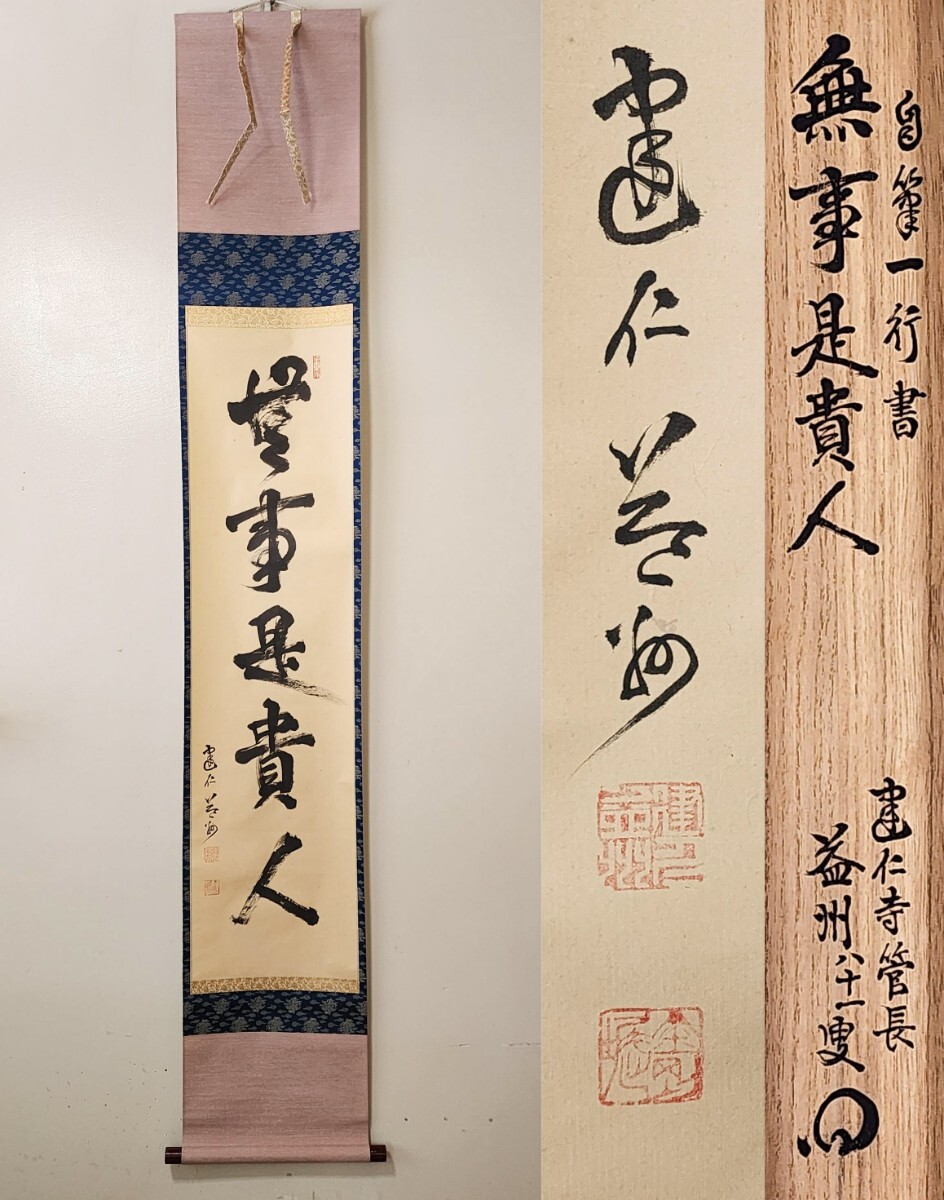 無事是貴人
建仁 益州
建仁 益州
建仁益州
自筆一行書
無事是貴人
建仁寺管長
益州 八十一叟